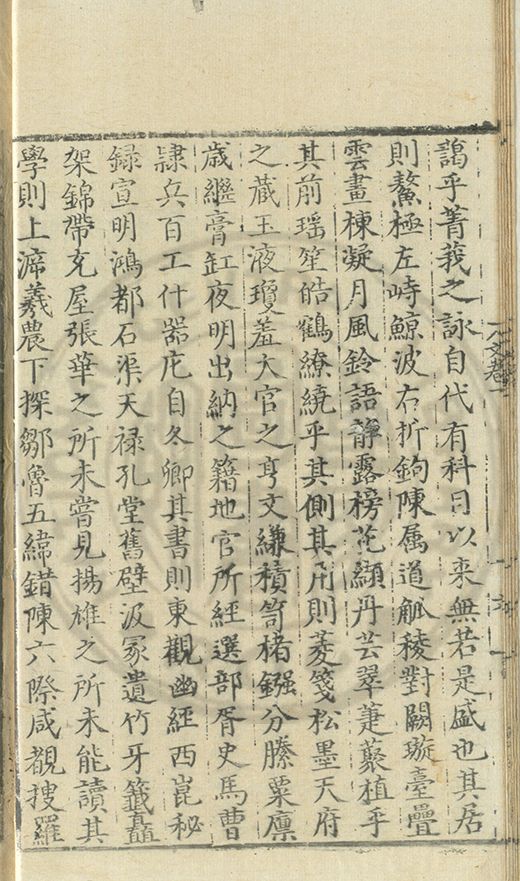 藹乎菁莪之詠自代有科目以来無若是盛也其居
則鰲極左峙鯨波右折鉤陳属道觚稜對闕璇臺疊
雲畫棟凝月風鈴語静露榜花纈丹芸翠萐䕺植乎
其前瑶笙皓鶴繚繞乎其側其用則菱箋松墨天府
之藏玉液瓊羞大官之亨文縑積笥楮鏹分縢粟廪
歳繼膏缸夜明出納之籍地官所經選部胥史馬曹
隷兵百工什器庀自冬卿其書則東觀幽經西崑秘
録宣明鴻都石渠天禄孔堂舊壁汲冢遺竹牙籤矗
架錦帶充屋張華之所未甞見揚雄之所未能讀其
學則上泝羲農下探鄒魯五緯錯陳六際咸覩搜羅
文巻一